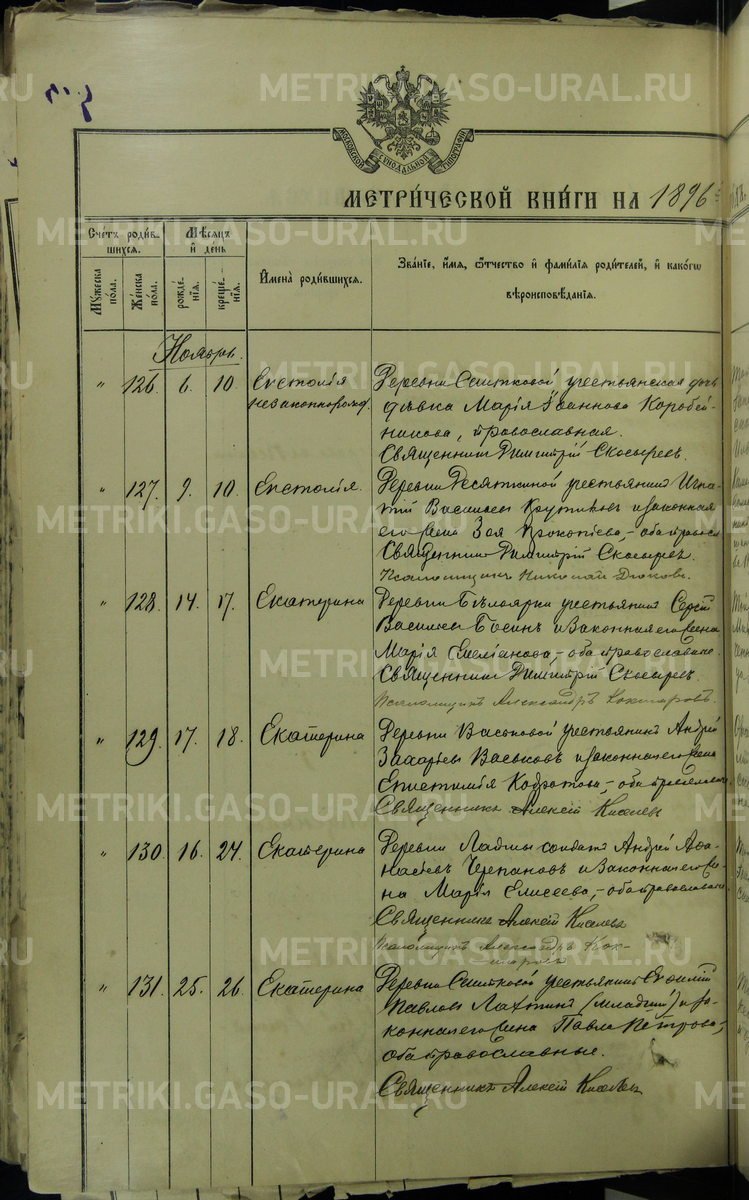 METRIKI.GASO-URAL.RU
МОСКОВСКОЙ СѴНОДАЛЬНОЙ ТИПОГРАФІИ
МЕТРИ́ЧЕСКОЙ КНИ́ГИ НА 1896
Сче́тъ роди́вшихся.
Му́жеска по́ла.
Же́нска по́ла.
Мѣ́сяцъ и́ де́нь
рожде́нїя.
креще́нїя.
И҆мена̀ роди́вшихся.
Зва́нїе, и҆́мя, ѻ҆́тчество и҆ фами́лїя роди́телей, и҆ како́гѡ
вѣроисповѣ́данїя.
Ноябрь.
" 126. 6. 10. Евстолія
незаконнорожд.
Деревни Сашковой крестьянская
дѣвка Марія Іоаннова Коробей-
никова, православная.
Священникъ Димитрій Скосыревъ.
" 127. 9. 10. Евстолія.
Деревни Десяткиной крестьянинъ Игна-
тій Васильевъ и законная
его жена Зоя Прокопіева, – оба правосл
Священникъ Димитрій Скосыревъ.
Псаломщикъ Николай Дюковъ.
" 128. 14. 17. Екатерина
Деревни Бѣлоярки крестьянинъ Сергій
Васильевъ и законная его жена
Марія Емеліанова, – оба православные.
Священникъ Димитрій Скосыревъ.
Псаломщикъ Александръ Кокшаровъ.
" 129. 17. 18. Екатерина
Деревни Васьковой крестьянинъ Андрей
Захаріевъ Васьковъ и законная его жена
Епистимія Кодратова, – оба православные.
Священникъ Алексій Киселевъ
" 130. 16. 24. Екатерина
Деревни солдатъ Андрей Аѳа-
насіевъ Черепановъ и законная его же-
на Марія Елисеева, – оба православные.
Священникъ Алексій Киселевъ
Псаломщикъ Александръ Кок-
шаровъ
" 131. 25. 26. Екатерина
Деревни Сашковой крестьянинъ Евфимій
Павловъ Лахтинъ (младшій) и за-
конная его жена Павла Петрова,
оба православные.
Священникъ Алексій Киселевъ